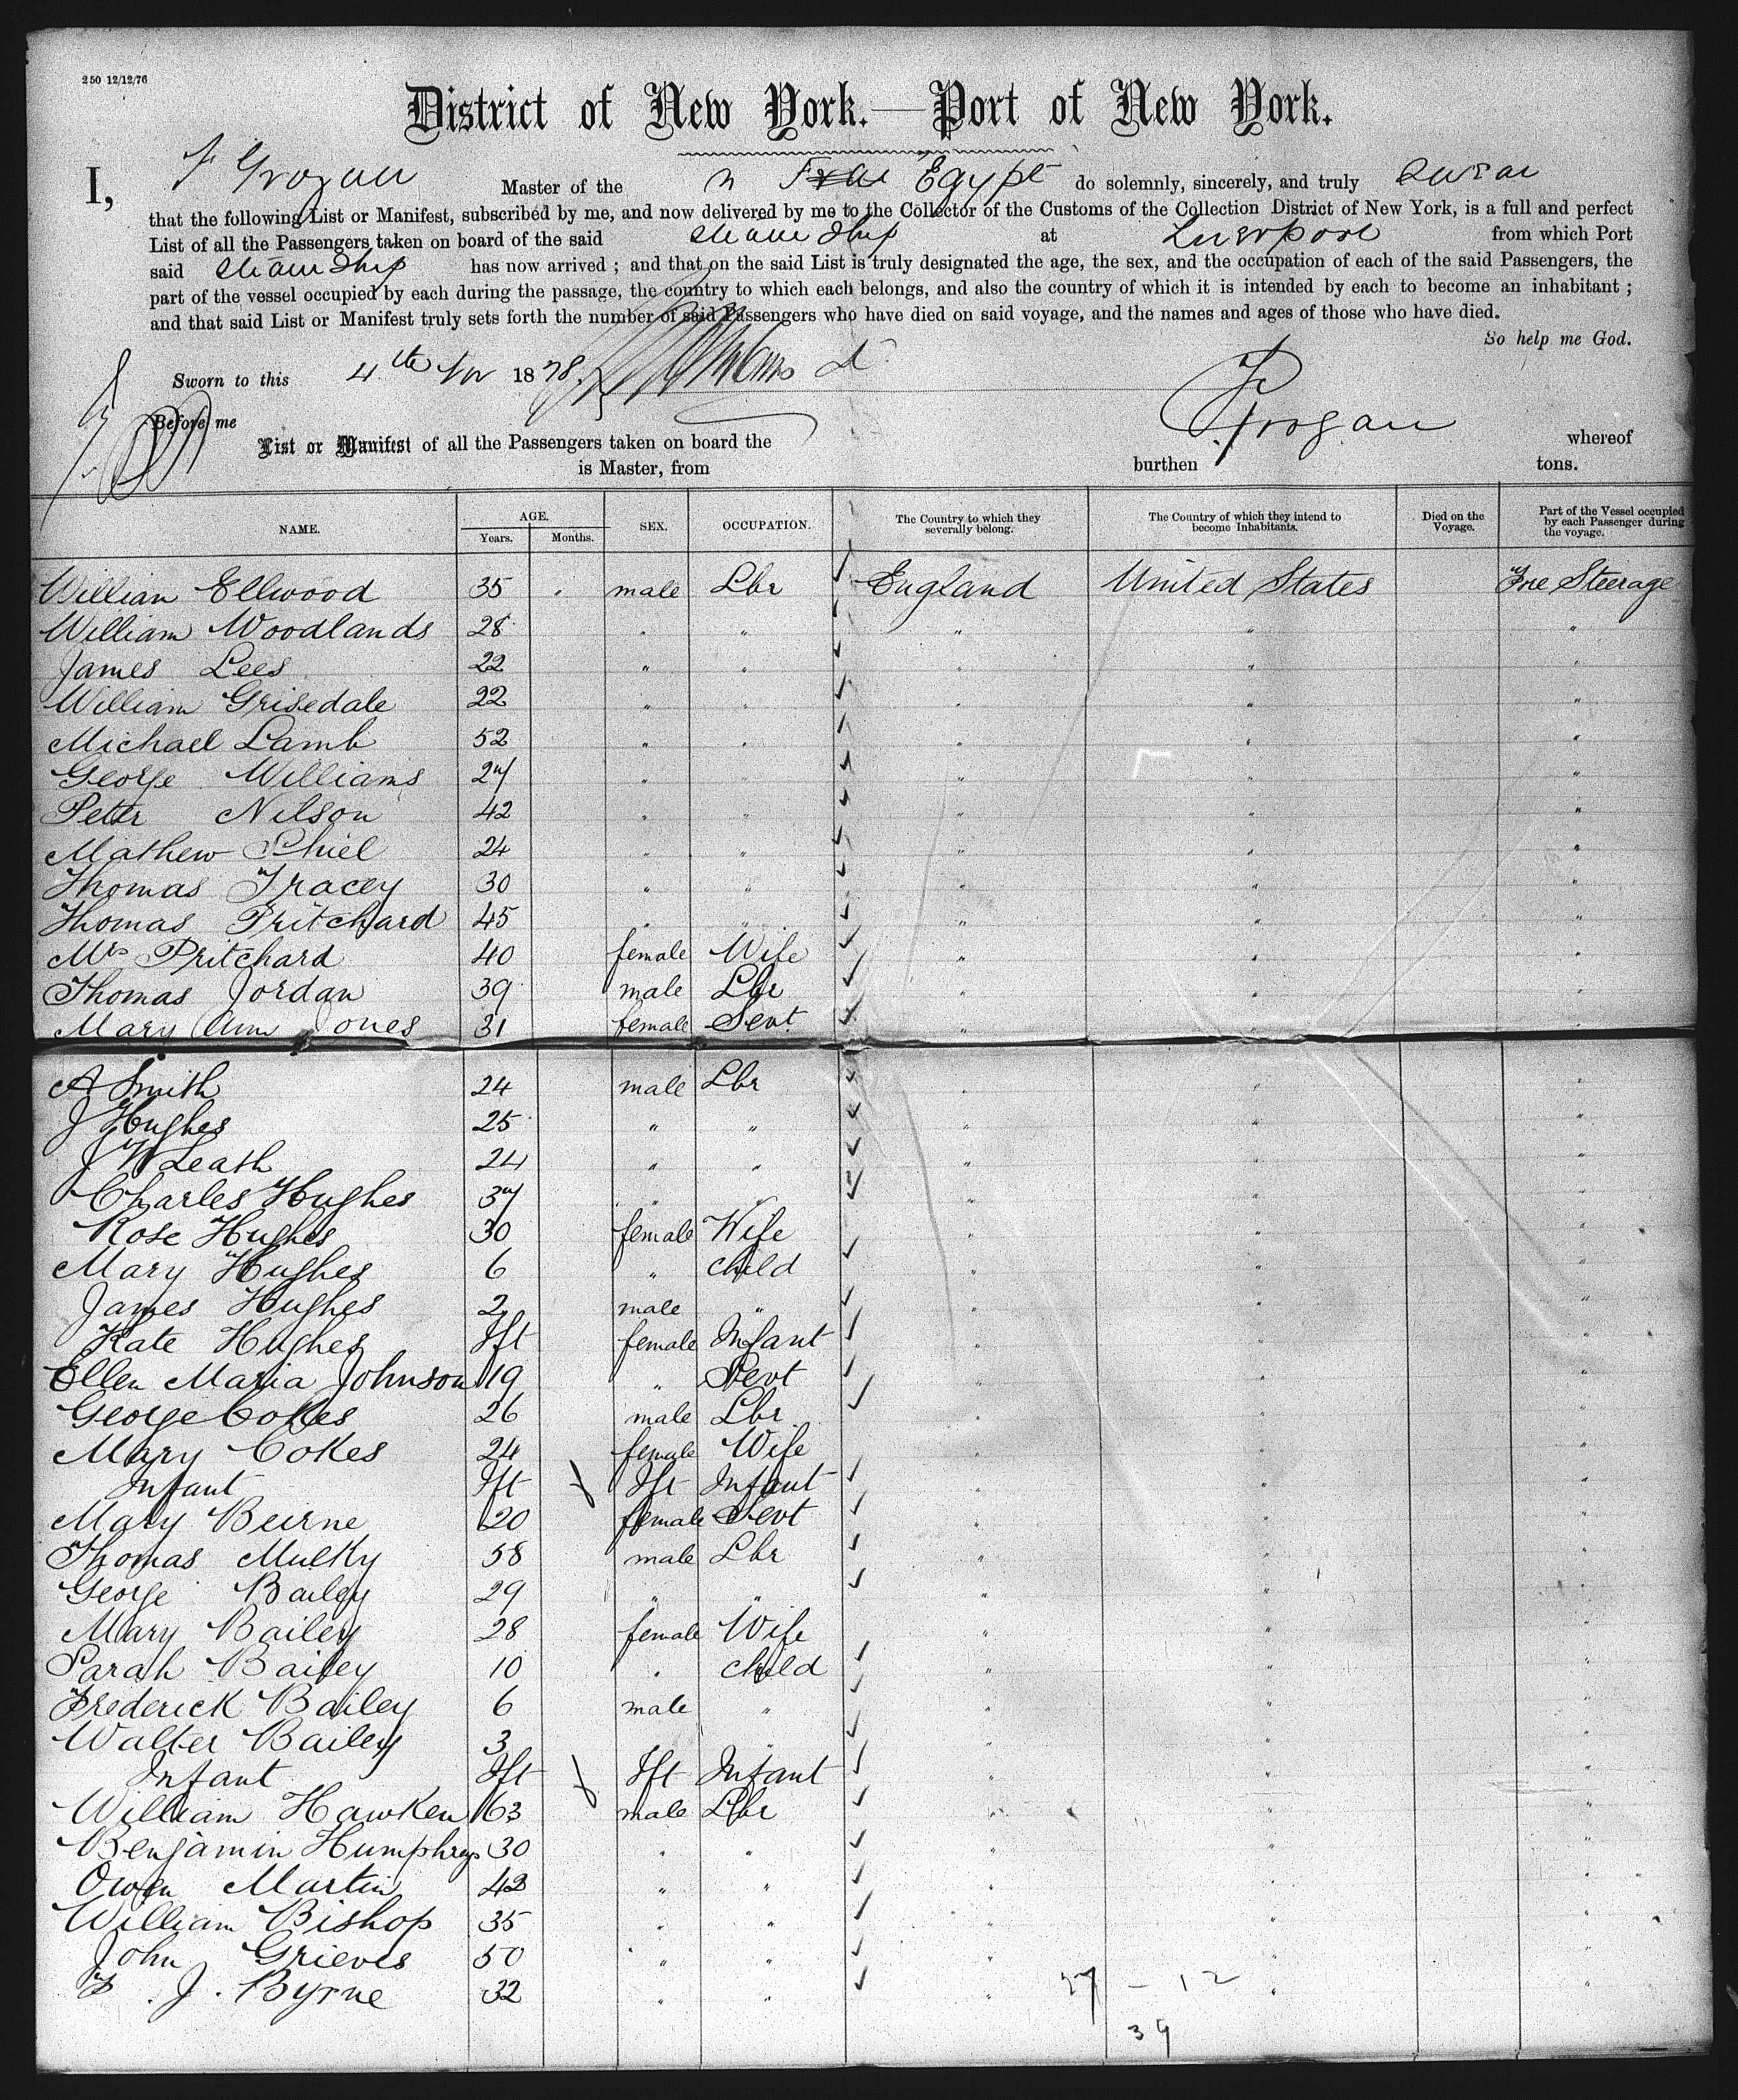 250 12/12/76
District of New York.—Port of New York.
I, F Grogan Master of the Egypt do solemnly, sincerely, and truly swear
that the following List or Manifest, subscribed by me, and now delivered by me to the Collector of the Customs of the Collection District of New York, is a full and perfect
List of all the Passengers taken on board of the said Steam Ship at Liverpool from which Port
said Steam Ship has now arrived ; and that on the said List is truly designated the age, the sex, and the occupation of each of the said Passengers, the
part of the vessel occupied by each during the passage, the country to which each belongs, and also the country of which it is intended by each to become an inhabitant ;
and that said List or Manifest truly sets forth the number of said Passengers who have died on said voyage, and the names and ages of those who have died.
So help me God.
Sworn to this 4th Nov 1878.
F Grogan
Before me
List or Manifest of all the Passengers taken on board the whereof
is Master, from burthen tons.
NAME. AGE. Years. Months. SEX. OCCUPATION. The Country to which they severally belong. The Country of which they intend to become Inhabitants. Died on the Voyage. Part of the Vessel occupied by each Passenger during the voyage.
William Ellwood 35 male Lbr England United States Fore Steerage
William Woodlands 28 " " " " "
James Lees 22 " " " " "
William Grisedale 22 " " " " "
Michael Lamb 52 " " " " "
George Williams 27 " " " " "
Peter Nilson 42 " " " " "
Mathew Shiel 24 " " " " "
Thomas Tracey 30 " " " " "
Thomas Pritchard 45 " " " " "
Mrs Pritchard 40 female Wife " " "
Thomas Jordan 39 male Lbr " " "
Mary Ann Jones 31 female Sevt " " "
A Smith 24 male Lbr " " "
J Hughes 25 " " " " "
J W Leash 24 " " " " "
Charles Hughes 37 " " " " "
Rose Hughes 30 female Wife " " "
Mary Hughes 6 " child " " "
James Hughes 2 male " " " "
Kate Hughes Ift female Infant " " "
Ellen Maria Johnson 19 " Sevt " " "
George Cokes 26 male Lbr " " "
Mary Cokes 24 female Wife " " "
Infant Ift Ift Infant " " "
Mary Beirne 20 female Sevt " " "
Thomas Mulky 58 male Lbr " " "
George Bailey 29 " " " " "
Mary Bailey 28 female Wife " " "
Sarah Bailey 10 " child " " "
Frederick Bailey 6 male " " " "
Walter Bailey 3 " " "
Infant Ift Ift Infant " " "
William Hawken 63 male Lbr " " "
Benjamin Humphreys 30 " " " " "
Owen Martin 42 " " " " "
William Bishop 35 " " " " "
John Grieves 50 " " " " "
F. J. Byrne 32 " " " " "
27 - 12
39